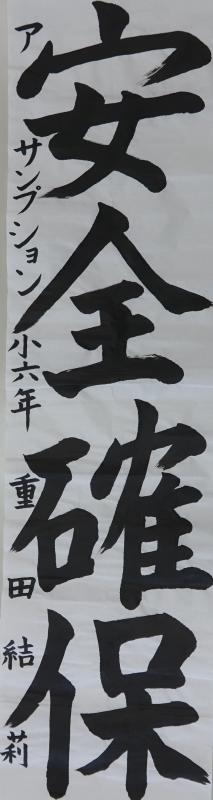 安全確保
アサンプション小六年 重田結莉